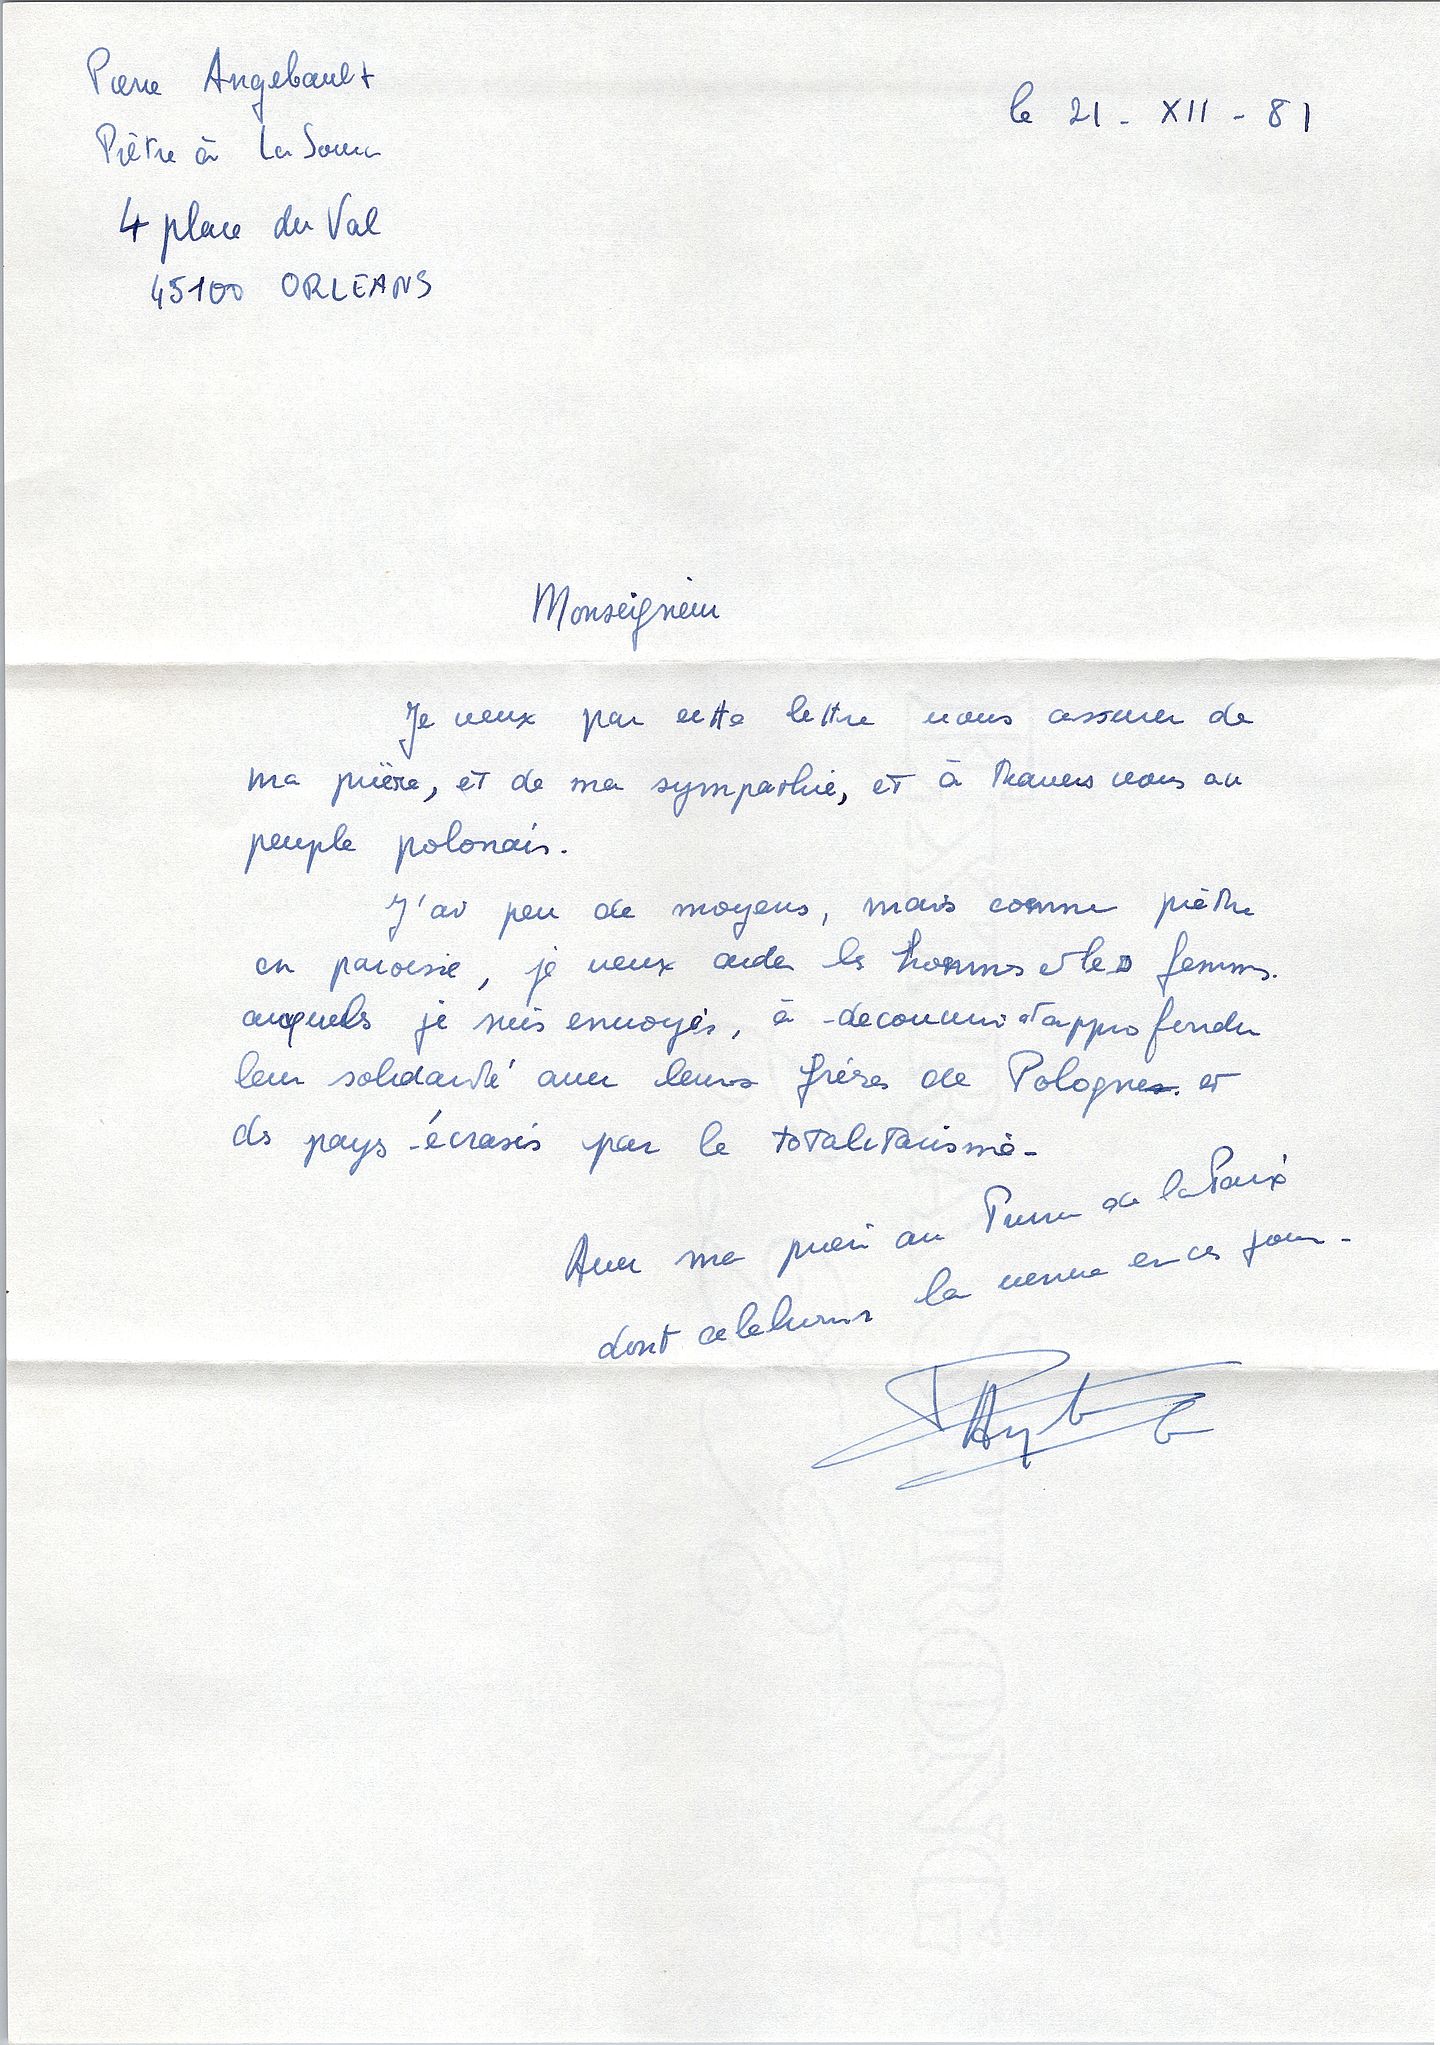 Pierre Angebault
Prêtre à La Source
4 place du Val
45100 ORLEANS
le 21 - XII - 81
Monseigneur
Je veux par cette lettre vous assurer de
ma prière, et de ma sympathie, et à travers vous au
peuple polonais.
J'ai peu de moyens, mais comme prêtre
en paroisse, je veux aider les hommes et les femmes
auxquels je suis envoyés, à découvrir et approfondir
leur solidarité avec leurs frères de Pologne et
des pays écrasés par le totalitarisme -
Avec ma prière au Prince de la Paix
dont célébrons la venue en ces jours -